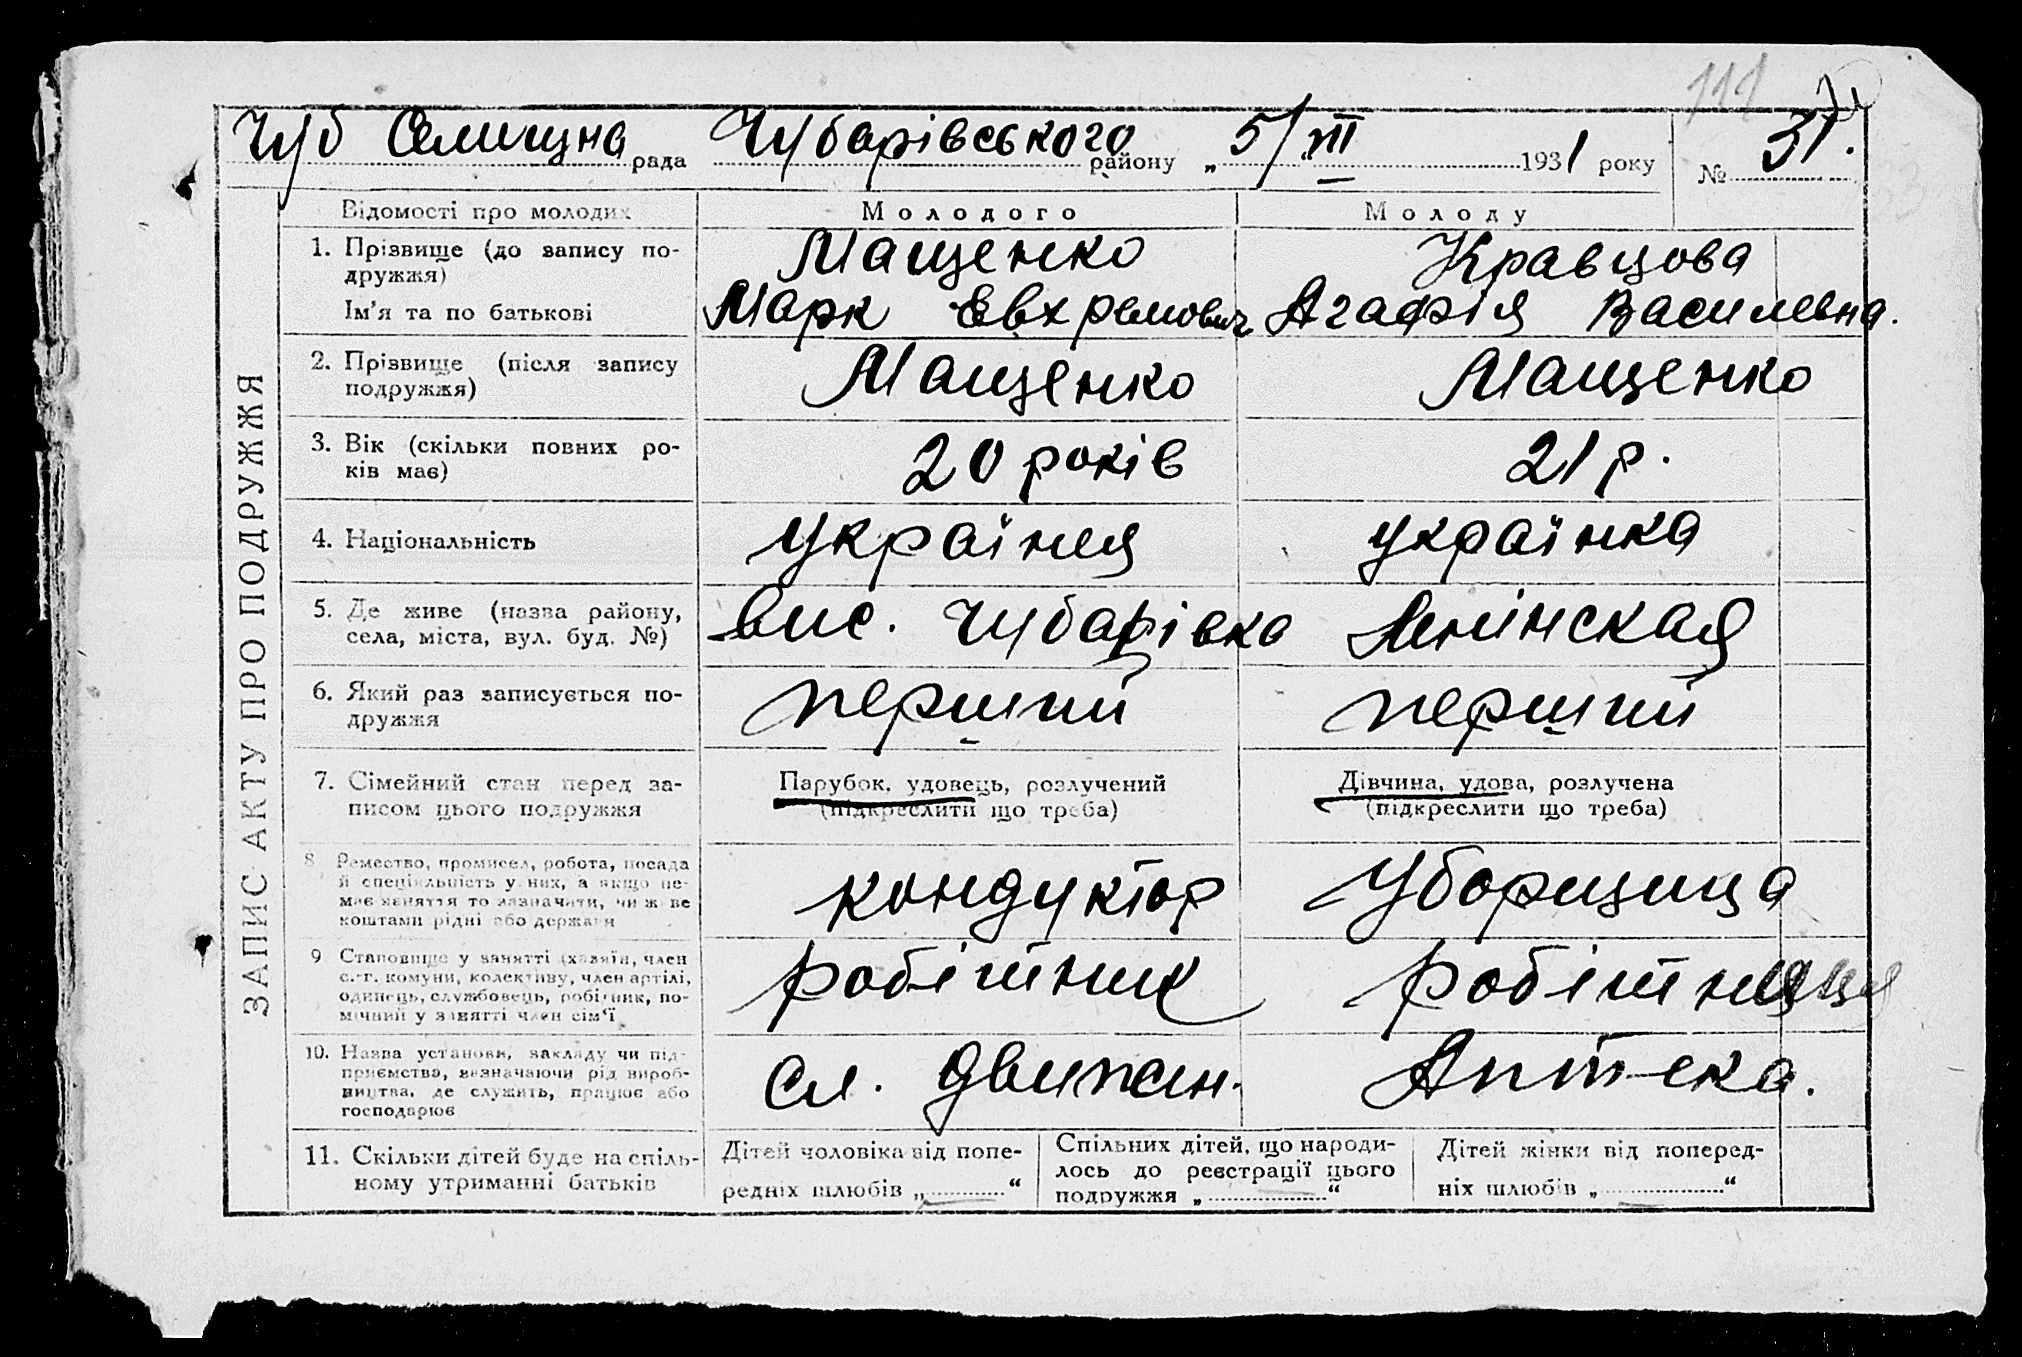 111
Чуб Селищна рада Чубарівського району „ 5/III 1931 року № 31.
ЗАПИС АКТУ ПРО ПОДРУЖЖЯ
Відомості про молодих Молодого Молоду
1. Прізвище (до запису по- Мащенко Кравцова
дружжя)
Ім'я та по батькові Марк Евхремович Агафія Василевна.
2. Прізвище (після запису Мащенко Мащенко
подружжя)
3. Вік (скільки повних ро- 20 років 21 р.
ків має)
4. Національність українец українка
5. Де живе (назва району, вис. Чубарівка Ленінская
села, міста, вул. буд. №)
6. Який раз записується по- перший перший
дружжя
7. Сімейний стан перед за- Парубок, удовець, розлучений Дівчина, удова, розлучена
писом цього подружжя (підкреслити що треба) (підкреслити що треба)
8. Ремество, промисел, робота, посада
й спеціяльність у них, а якщо не- кондуктор Уборщица
має заняття то зазначити, чи живе
коштами рідні або держави
9 Становище у занятті (хазяїн, член робітник робітниця
с.-г. комуни, колективу, член артілі,
одинець, службовець, робітник, по-
мічний у занятті член сім'ї
10. Назва установи, закладу чи під- сл. движен. Аптека.
приємства, зазначаючи рід вироб-
ництва, де служить, працює або
господарює
11. Скільки дітей буде на спіль- Дітей чоловіка від попе- Спільних дітей, що народи- Дітей жінки від поперед-
ному утриманні батьків редніх шлюбів „ — “ лось до реєстрації цього ніх шлюбів „ — “
подружжя „ — “